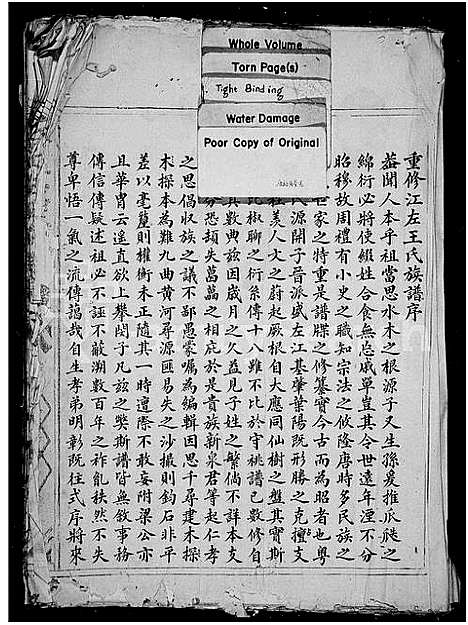 Whole Volume
Torn Page(s)
Tight Binding
Water Damage
Poor Copy of Original
重修江左王氏族譜序
葢聞人本乎祖當思水木之根源子又生孫爰推瓜瓞之
綿衍必將使綴姓合食無忘戚單豈其令世遠年湮不分
昭穆故周禮有小史之職知宗法之攸隆唐時多民族之
世家之特重是譜牒之修纂實今古而為昭者也粵
氏源開子晉派盛左江基肇葉陽既形勝之克擅支
社美人文之蔚起厥根自大應同仙樹之盤其實斯
比椒聊之衍系傳十八雖不比於守祧譜已數修自
其數典茲因歲月之久益見子姓之繁倘不詳本支
勿恐頡失藟藟之相庇於是貴族新泉君等起仁孝
之思倡收族之議不鄙愚蒙囑為編輯因思千尋建木探
木探本為難九曲黄河尋源匪易失之沙撮則鈞石非平
差以毫釐則權衡未正隨其一時遭際不敢妄附梁公亦
且華冑云遙直欲上攀閔子凡茲之獘斯譜皆無敘事務
傳信傳疑述祖必不誣不蔽溯數百年之祚胤秩然不失
尊卑悟一氣之流傳藹哉自生孝弟明彰既往式序將來